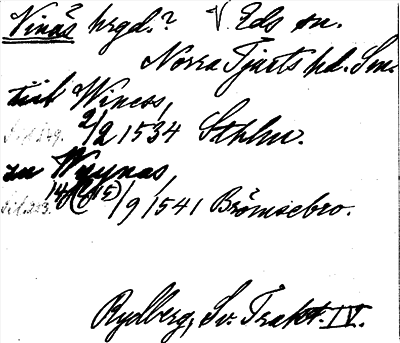 Vinäs hrgd.? V. Eds sn.
Norra Tjusts hd. Sm.
till Winess,
2/2 1534 Sthlm.
zu Wyynas,
14 (15)/9 1541 Brömsebro.
Rydberg, Sv. Trakt. IV.